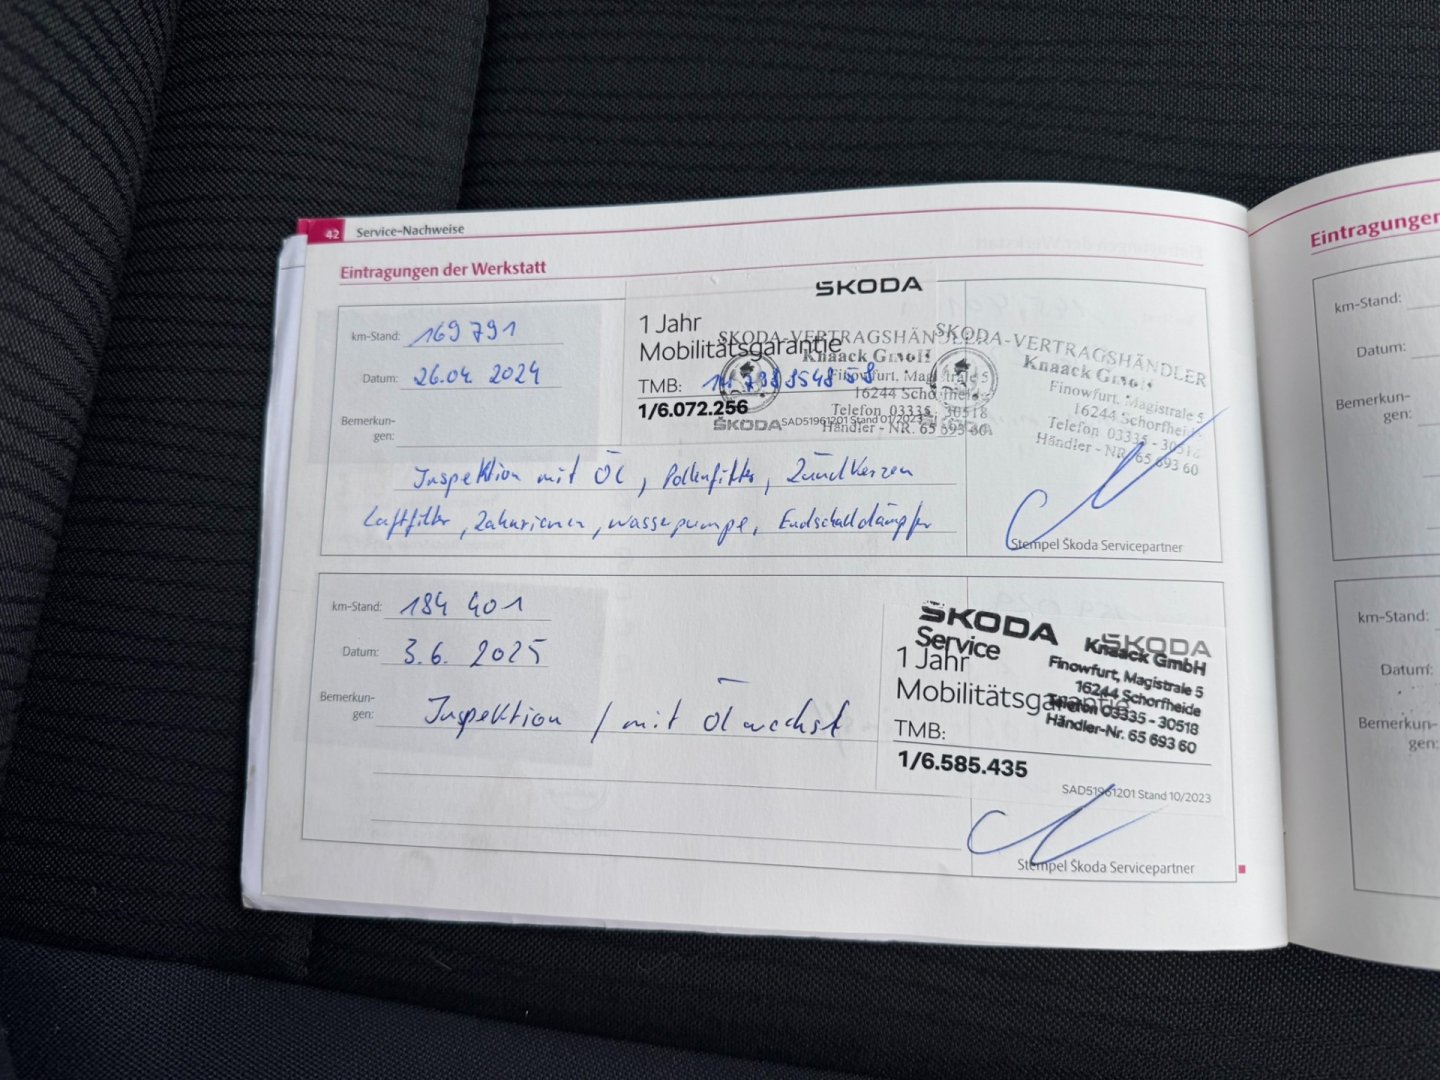 42 Service-Nachweise
Eintragungen der Werkstatt
km-Stand: 169 791
Datum: 26.04. 2024
Bemerkun-
gen:
ŠKODA
1 Jahr
Mobilitätsgarantie
TMB:
1/6.072.256
SAD51961201 Stand 01/2023
ŠKODA
SKODA-VERTRAGSHÄNDLER
Knaack GmbH
Finowfurt, Magistrale 5
16244 Schorfheide
Telefon 03335 - 30518
Händler - NR. 65 693 60
SKODA-VERTRAGSHÄNDLER
Knaack GmbH
Finowfurt, Magistrale 5
16244 Schorfheide
Telefon 03335 - 30518
Händler - NR. 65 693 60
Inspektion mit Öl, Pollenfilter, Zündkerzen
Luftfilter, Zahnriemen, Wasserpumpe, Endschalldämpfer
Stempel Škoda Servicepartner
km-Stand: 184 401
Datum: 3.6. 2025
Bemerkun-
gen: Inspektion / mit Ölwechsl
ŠKODA
Service
Knaack GmbH
Finowfurt, Magistrale 5
16244 Schorfheide
Telefon 03335 - 30518
Händler-Nr. 65 693 60
ŠKODA
1 Jahr
Mobilitätsgarantie
TMB:
1/6.585.435
SAD51961201 Stand 10/2023
Stempel Škoda Servicepartner
Eintragungen
km-Stand:
Datum:
Bemerkun-
gen:
km-Stand:
Datum:
Bemerkun-
gen: